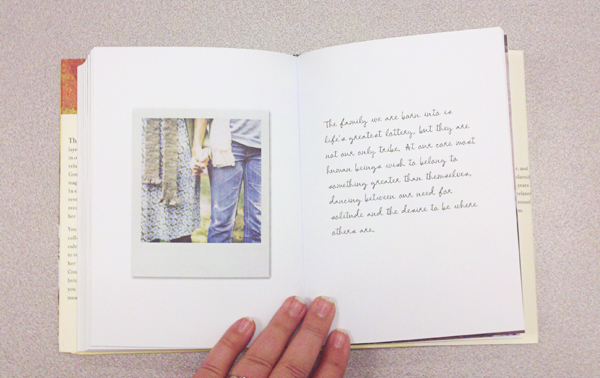 The family we are born into is
life's greatest lottery, but they are
not our only tribe. At our core most
human beings wish to belong to
something greater than themselves,
dancing between our need for
solitude and the desire to be where
others are.